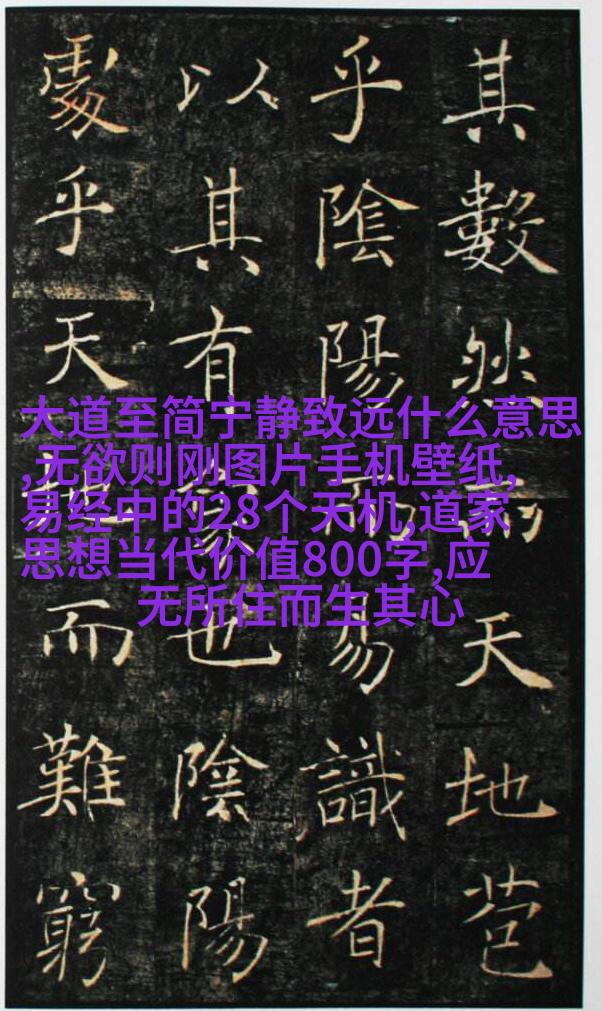 其數然而天地苞
乎陰陽而易識者
以其有象也陰陽
處乎天地而難窮
大道至简宁静致远什么意思
,无欲则刚图片手机壁纸,
易经中的28个天机,道家
思想当代价值800字,应
无所住而生其心